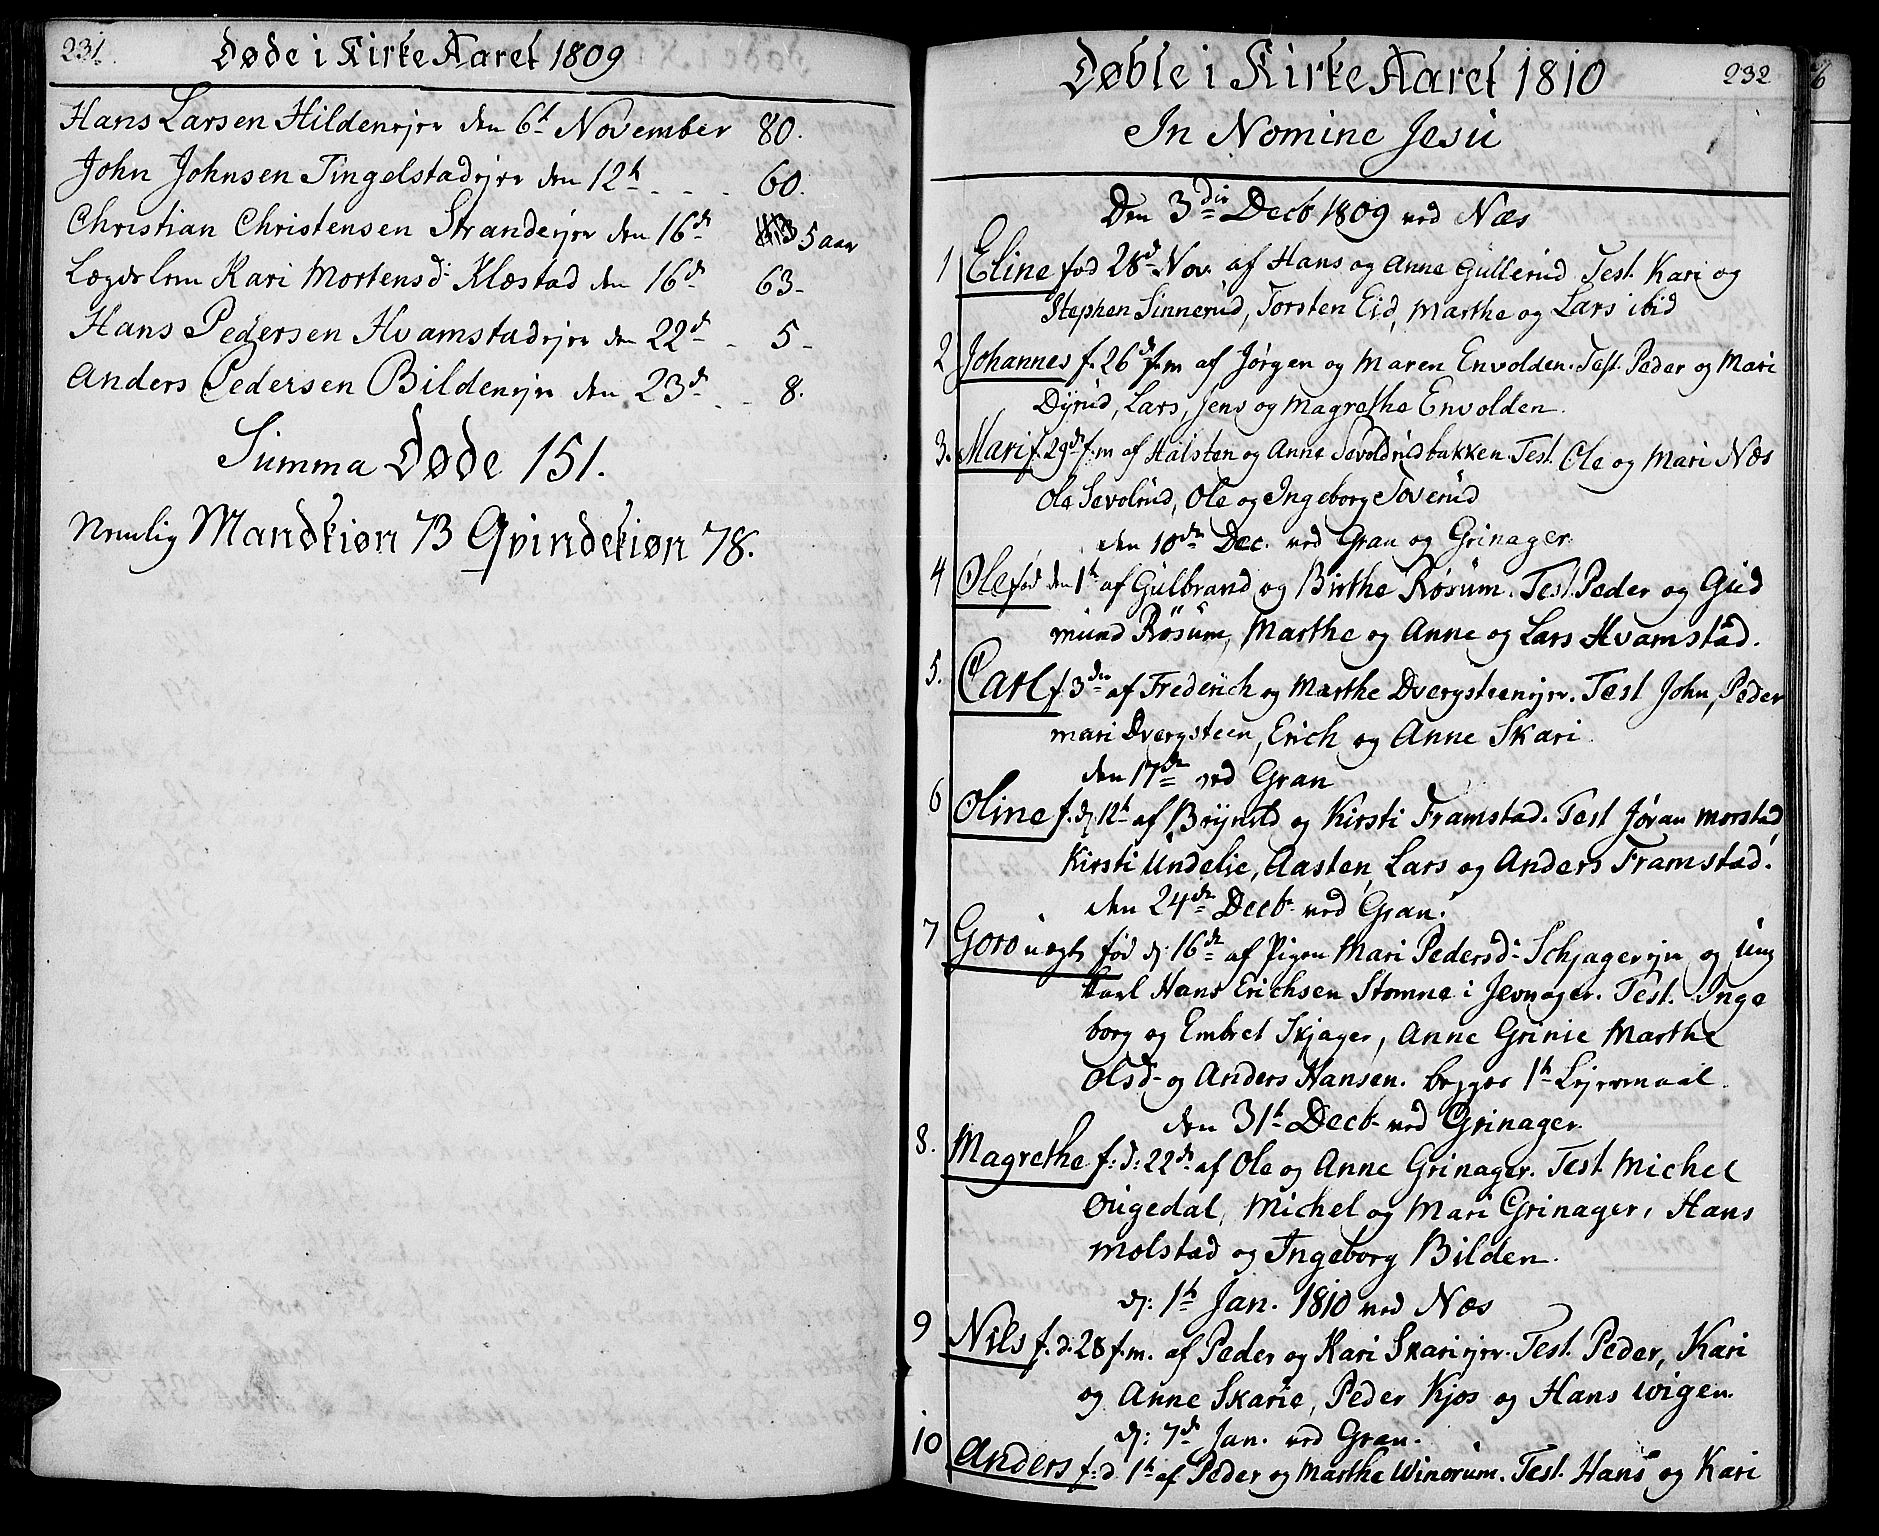 231.
Døde i Kirke Aaret 1809
Hans Larsen Hildenejer den 6t November 80.
John Johnsen Tingelstadejer den 12t - - - 60.
Christian Christensen Strandejer den 16d 5 aar
Lægdslem Kari Mortensd: Klæstad den 16d 63-
Hans Pedersen Hvamstadejer den 22d - 5-
Anders Pedersen Bildenejer den 23d - - 8.
Summa Døde 151.
Nemlig Mandkiøn 73 Qvindekiøn 78.
Døbte i Kirke Aaret 1810
232
In Nomine Jesu
Den 3die Decb 1809 ved Næs
1 Eline fød 28d Nov. af Hans og Anne Gullerud Test. Kari og
Stephen Sinnerud, Torsten Eid, Marthe og Lars ibid
2 Johannes f. 26d f.m af Jørgen og Maren Envolden. Test. Peder og Mari
Dyrud, Lars, Jens og Magrethe Envolden.
3. Mari f. 29d f.m af Halsten og Anne Sevoldrudbakken. Test. Ole og Mari Næs
Ole Sevolrud, Ole og Ingeborg Toverud
den 10de Dec. ved Gran og Grinager
4 Ole fød den 1t af Gulbrand og Birthe Røsum. Test. Peder og Gud
mund Røsum, Marthe og Anne og Lars Hvamstad.
5. Carl f. 3die af Frederich og Marthe Dvergsteenejer. Test John, Peder
Mari Dvergsteen, Erich og Anne Skari.
den 17de ved Gran
6 Oline f. d 12t af Brynild og Kirsti Framstad. Test Jøran Morstad,
Kirsti Undelie, Aasten, Lars og Anders Framstad.
den 24de Decb. ved Gran.
7 Goro uægt fød d: 16de af Pigen Mari Pedersd- Schjagerejer og ung
karl Hans Erichsen Stomne i Jevnager. Test. Inge
borg og Embret Skjager, Anne Grinie Marthe
Olsd- og Anders Hansen. begges 1t Lejermaal
den 31t Decb- ved Grinager
8. Magrethe f: d: 22de af Ole og Anne Grinager. Test. Michel
Øigedal, Michel og Mari Grinager, Hans
Molstad og Ingeborg Bilden.
d: 1t Jan. 1810 ved Næs
9 Nils f. d. 28 f.m. af Peder og Kari Skariejer. Test. Peder, Kari
og Anne Skarie, Peder Kjos og Hans Wigen.
d: 7d Jan. ved Gran.
10 Anders f: d. 1t af Peder og Marthe Winorum. Test. Hans og Kari